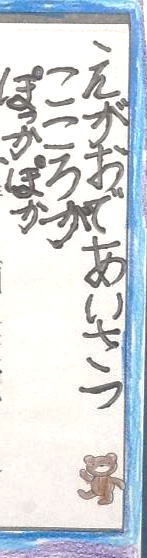 えがおで あいさつ
こころが
ぽっかぽか